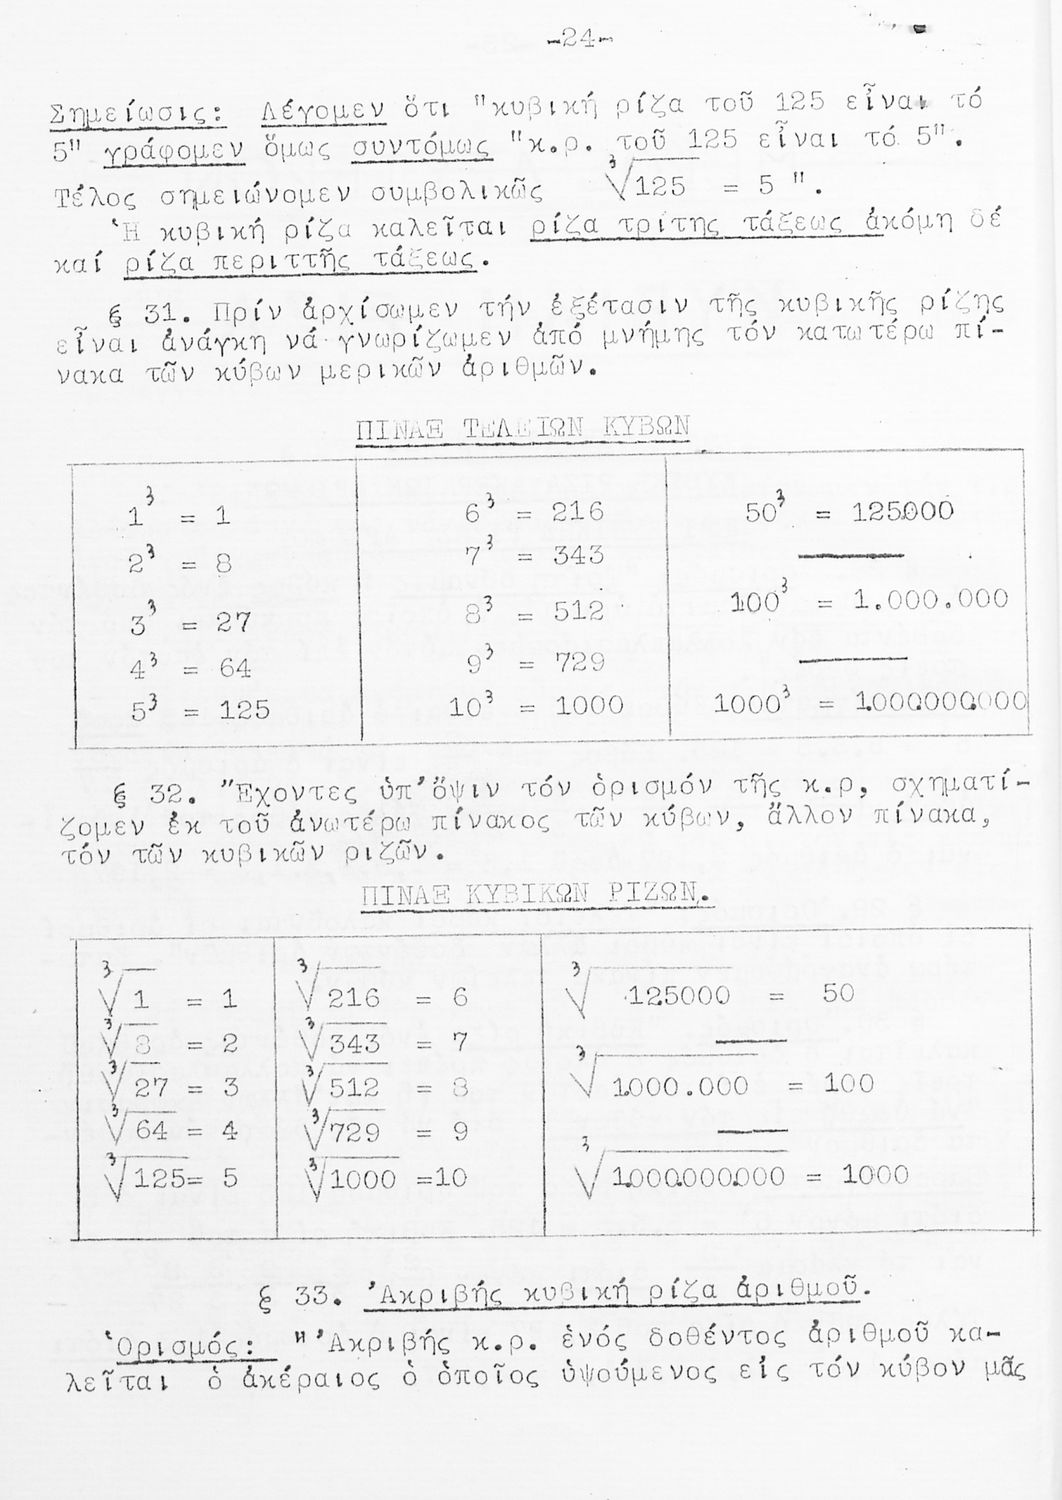 -24-
Σημείωσις: Λέγομεν ὅτι "κυβική ρίζα τοῦ 125 εἶναι τό
5" γράφομεν ὅμως συντόμως "κ.ρ. τοῦ 125 εἶναι τό 5".
Τέλος σημειώνομεν συμβολικῶς ∛125 = 5 ".
Ἡ κυβική ρίζα καλεῖται ρίζα τρίτης τάξεως ἀκόμη δέ
καί ρίζα περιττῆς τάξεως.
§ 31. Πρίν ἀρχίσωμεν τήν ἐξέτασιν τῆς κυβικῆς ρίζης
εἶναι ἀνάγκη νά γνωρίζωμεν ἀπό μνήμης τόν κατωτέρω πί-
νακα τῶν κύβων μερικῶν ἀριθμῶν.
ΠΙΝΑΞ ΤΕΛΕΙΩΝ ΚΥΒΩΝ
1³ = 1
2³ = 8
3³ = 27
4³ = 64
5³ = 125
6³ = 216
7³ = 343
8³ = 512
9³ = 729
10³ = 1000
50³ = 125.000
100³ = 1.000.000
1000³ = 1.000.000.000
§ 32. Ἔχοντες ὑπ' ὄψιν τόν ὁρισμόν τῆς κ.ρ, σχηματί-
ζομεν ἐκ τοῦ ἀνωτέρω πίνακος τῶν κύβων, ἄλλον πίνακα,
τόν τῶν κυβικῶν ριζῶν.
ΠΙΝΑΞ ΚΥΒΙΚΩΝ ΡΙΖΩΝ.
∛1 = 1
∛8 = 2
∛27 = 3
∛64 = 4
∛125= 5
∛216 = 6
∛343 = 7
∛512 = 8
∛729 = 9
∛1000 =10
∛125000 = 50
∛1.000.000 = 100
∛1.000.000.000 = 1000
§ 33. Ἀκριβής κυβική ρίζα ἀριθμοῦ.
Ὁρισμός: "Ἀκριβής κ.ρ. ἑνός δοθέντος ἀριθμοῦ κα-
λεῖται ὁ ἀκέραιος ὁ ὁποῖος ὑψούμενος εἰς τόν κύβον μᾶς